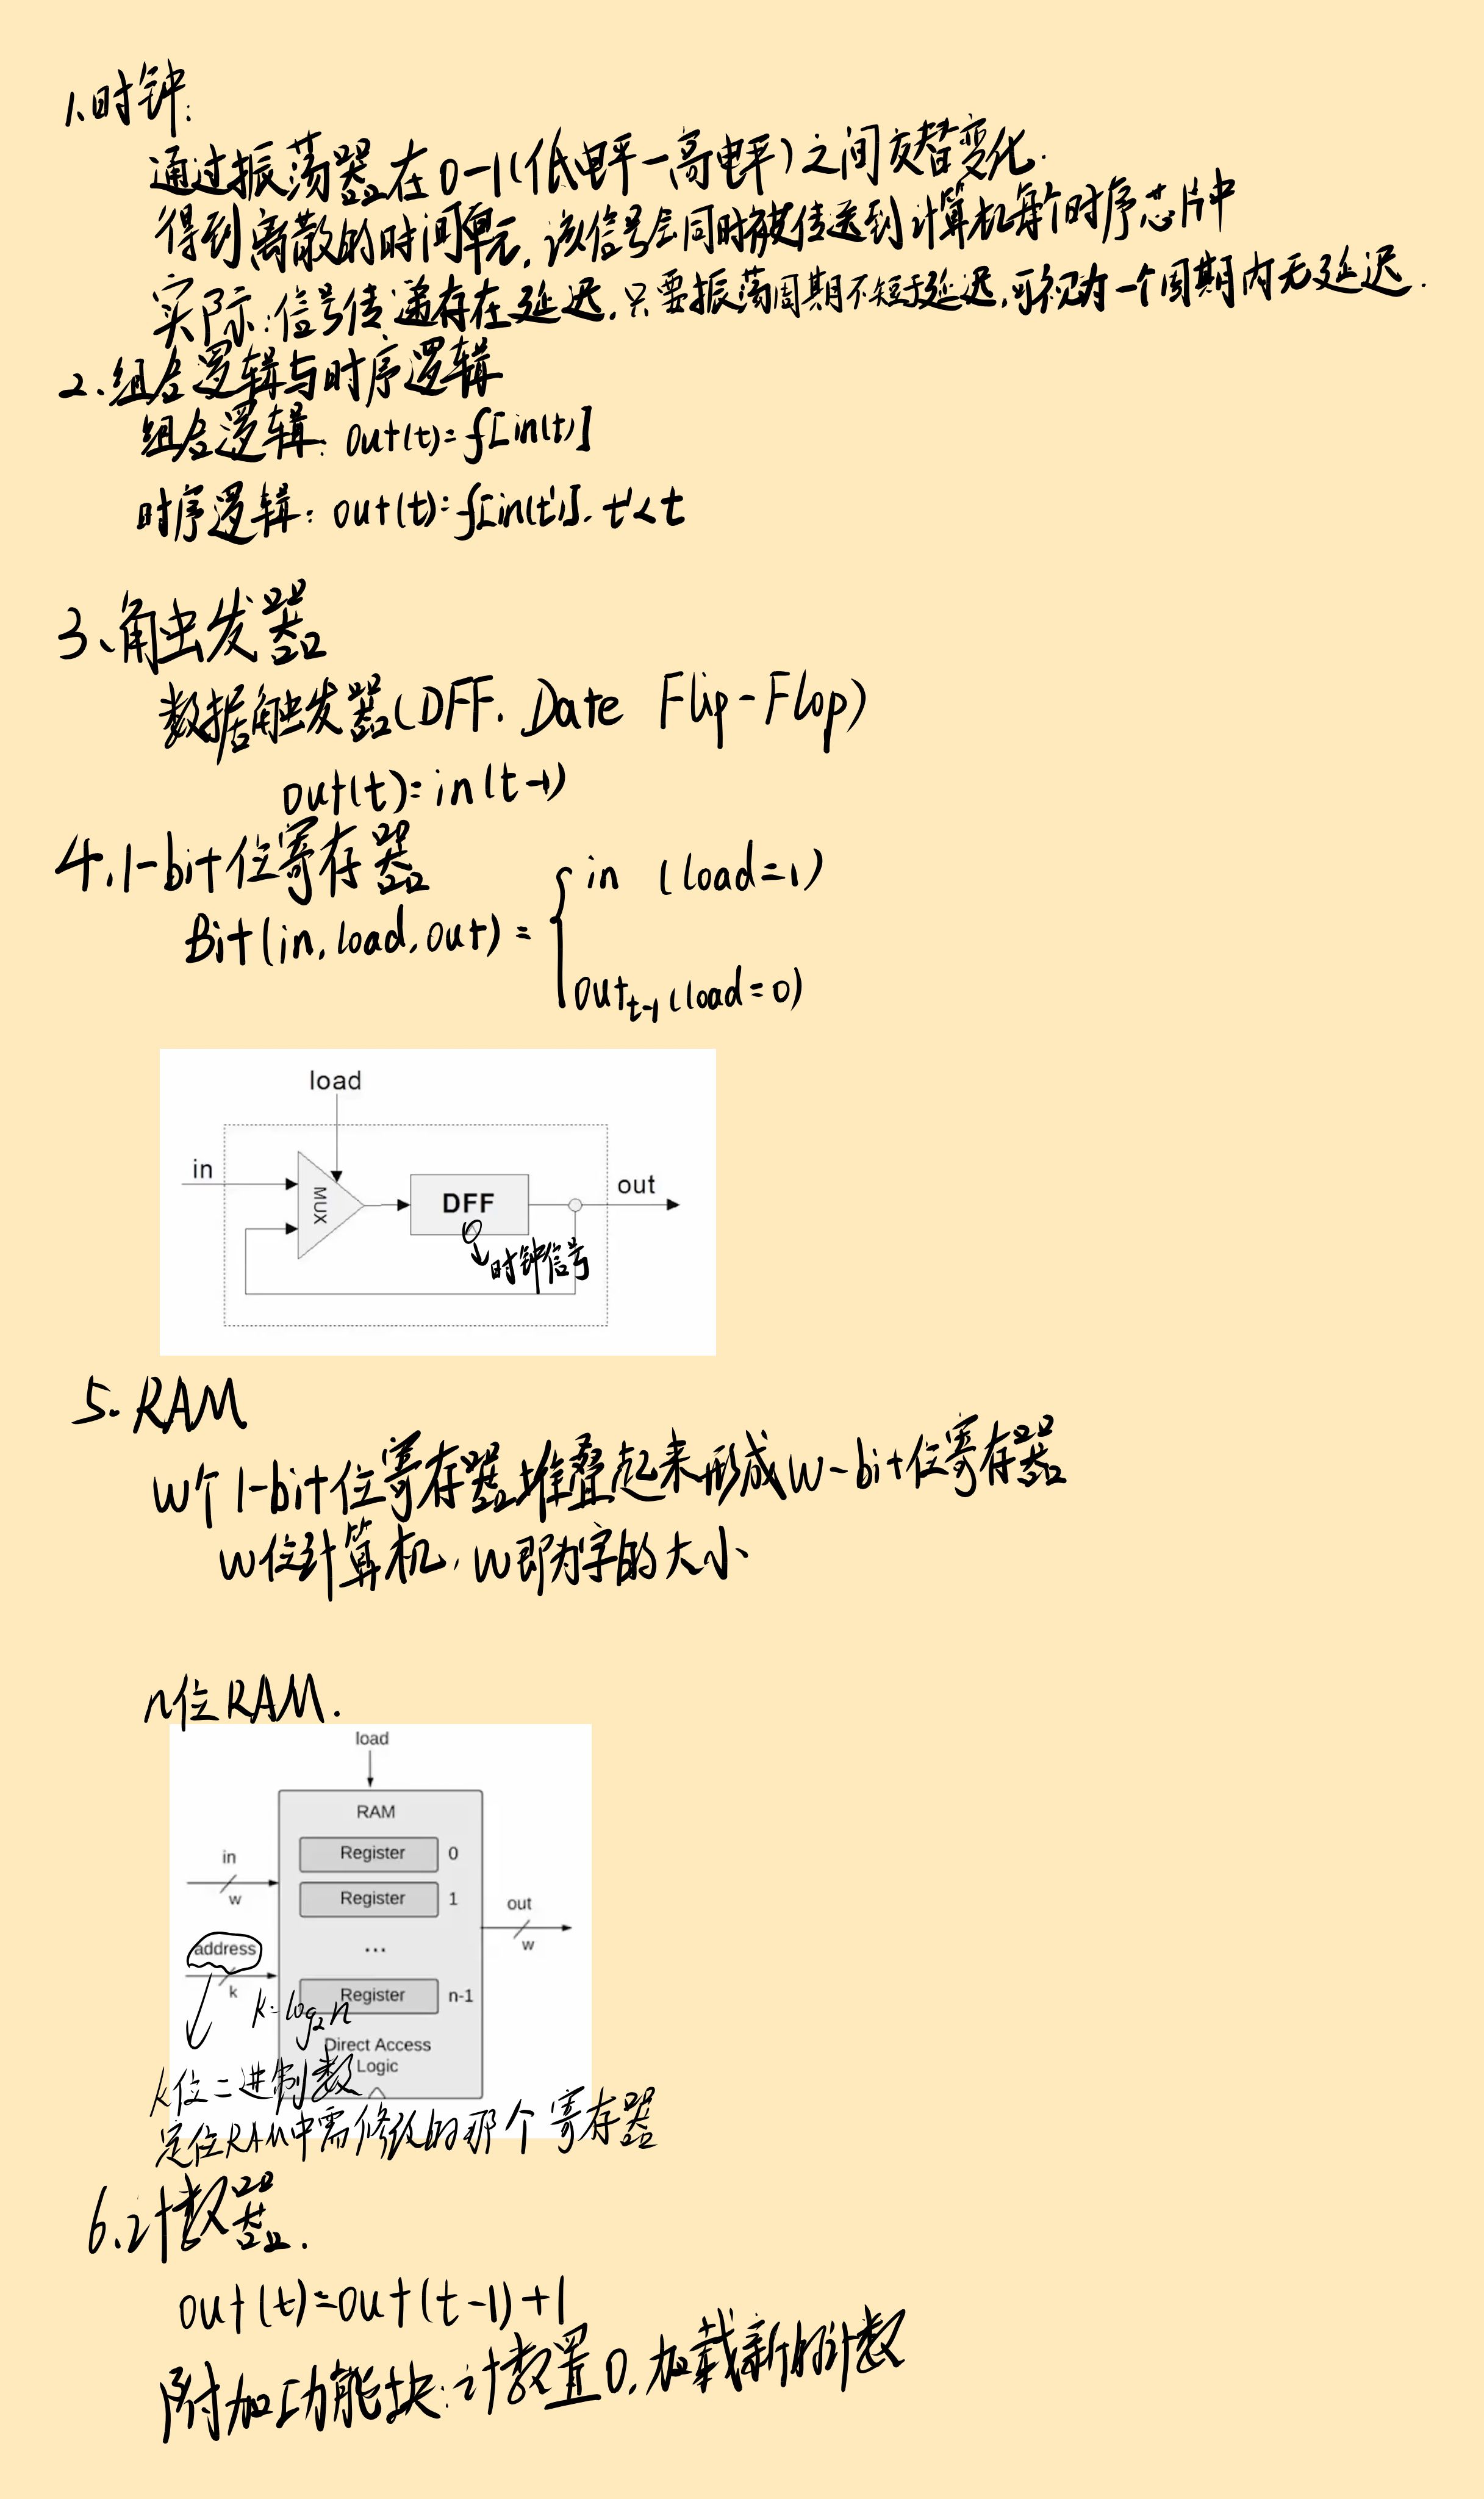 1、时钟:
通过振荡器在0-1(低电平-高电平)之间交替变化.
得到离散的时间单元,该信号会同时被传送到计算机每个时序芯片中
实际:信号传递存在延迟,只要振荡周期不短于延迟,可视为一个周期内无延迟.
2、组合逻辑与时序逻辑
组合逻辑: out(t)=f[in(t)]
时序逻辑: out(t)=f[in(t')]. t'<t
3、触发器
数据触发器(DFF. Date Flip-Flop)
out(t)=in(t-1)
4.1-bit位寄存器
in (load=1)
Bit(in,load,out)=
out t-1 (load=0)
load
in
MUX
DFF
out
时钟信号
5. RAM
w个1-bit位寄存器堆叠起来形成w-bit位寄存器
w位计算机,w即为字的大小
n位RAM.
load
RAM
Register 0
in
w
Register 1
out
w
address
...
k
Register n-1
k=log₂n
Direct Access
Logic
k位二进制数
定位RAM中需修改的那个寄存器
6、计数器.
out(t)=out(t-1)+1
附加功能块:计数置0,加载新的计数